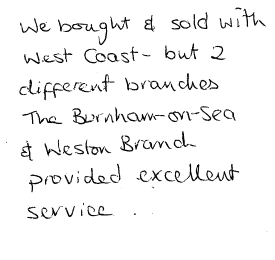 We bought & sold with
West Coast - but 2
different branches
The Burnham-on-Sea
& Weston Branch
provided excellent
service .